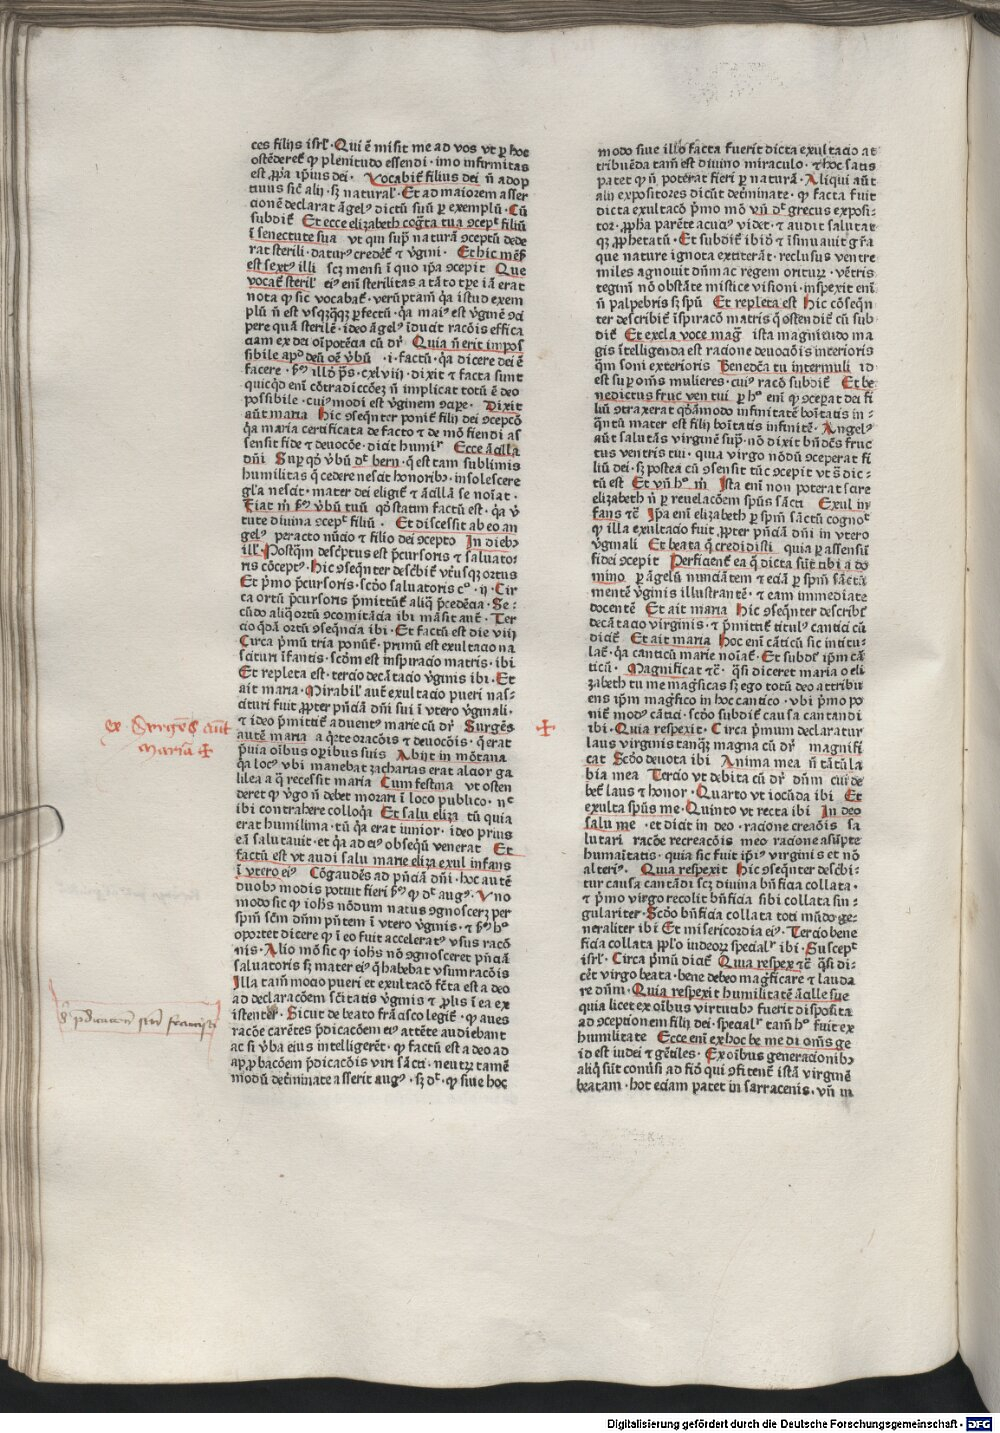 ces filijs isrl᷎·Qui ē misit me ad vos vt ꝑ hoc
ostēderet᷎ ꝙ plenitudo essendi·imo infirmitas
est ꝓpͥa ip̄ius dei· Vocabit᷎ filius dei n̄ adop
tiuus sic̄ alij·sꝫ natural᷎·Et ad maiorem asser
cionē declarat āgelꝰ dictū suū ꝑ exemplū·Cū
subdit᷎ Et ecce elizabeth cog̃ta tua ꝯcepᵗ filiū
ī senectute sua vt qui supͣ naturā ꝯceptū dede
rat sterili·daturꝰ credet᷎ ⁊ v̾gini· Et hic mēs᷎
est sextꝰ illi scꝫ mensi ī quo ip̄a ꝯcepit Que
vocat᷎ steril᷎ eiꝰ enī sterilitas a tāto tꝑe iā erat
nota ꝙ sic vocabat᷎·verūptamē q̄a istud exem
plū n̄ est vsqꝫqꝫ ꝑfectū·q̄a maiꝰ est v̾ginē ꝯci
pere quā sterilē·ideo āgelꝰ īducit racōis effica
ciam ex dei oīpotēcia cū dr̄ Quia n̄ erit impos
sibile apᵈ deū oē v̾bū ·i·factū·q̄a dicere dei ē
facere·ẜm illd̄ pͥs·cxlviij·dixit ⁊ facta sunt
quicqͥd enī cōtradiccōeꝫ n̄ implicat totū ē deo
possibile·cuiꝰmodi est v̾ginem ꝯcipe· Dixit
aūt maria Hic ꝯseqn̄ter ponit᷎ filij dei ꝯcepcō
q̄a maria certificata de facto ⁊ de mō fiendi as
sensit fide ⁊ deuocōe·dicit humil᷎r Ecce ācilla
dn̄i Supͬ qͦ v̾bū dᵗ bern·q̄ est tam sublimis
humilitas q̄ cedere nescit honoribꝰ·insolescere
gl̄ia nescit·mater dei eligit᷎ ⁊ ācillā se noīat·
Fiat m̄ ẜm v̾bū tuū qͦ statim factū est·q̄a v̾
tute diuina ꝯcepᵗ filiū· Et discessit ab eo an
gelꝰ peracto nūcio ⁊ filio dei ꝯcepto In diebꝰ
ill᷎·Postqͣm desc̾ptus est p̄cursoris ⁊ saluato
ris cōceptꝰ·Hic ꝯseqn̄ter desc̾bit᷎ vt̾usqꝫ ortus
Et pͥmo p̄cursoris·scd̄o saluatoris cᵒ·ij·Cir
ca ortū p̄cursoris p̄mittūt᷎ aliqͣ p̄cedēcia·Se-
cūdo aliqͣ ortū ꝯcomitācia ibi māsit aut᷎·Ter
cio qͦdā ortū ꝯseqn̄cia ibi·Et factū est die viij
Circa pͥmū tria ponūt᷎·primū est exultacio na
scituri īfantis·scd̄m est inspiracio matris·ibi
Et repleta est·tercio decātacio v̾ginis ibi·Et
ait maria·Mirabil᷎ aut᷎ exultacio pueri nas-
cituri fuit ꝓpter pn̄ciā dn̄i sui ī vtero v̾ginali·
⁊ ideo p̄mittit᷎ aduentꝰ marie cū dr̄ Surgēs
autē maria a qͥete oracōis ⁊ deuocōis·q̄ erat
p̄uia oībus oꝑibus suis Abijt in mōtana
q̄a locꝰ vbi manebat zacharias erat alcior ga
lilea a q̄ recessit maria Cum festina vt osten
deret ꝙ v̾go n̄ debet morari ī loco publico·nᵉᶜ
ibi contrahere colloqͥa Et salu eliza tū quia
erat humilima·tū q̄a erat iunior·ideo prius
eā salutauit·⁊ q̄a ad eiꝰ obseqͥū venerat Et
factū est vt audi salu marie eliza exul infans
ī vtero eiꝰ Cōgaudēs ad pn̄ciā dn̄i·hoc autē
duobꝰ modis potuit fieri ẜm ꝙ dᵗ augꝰ·Vno
modo sic ꝙ ioh̄s nōdum natus ꝯgnosceꝫ per
spm̄ scm̄ dn̄m pn̄tem ī vtero v̾ginis·⁊ ẜm hᵒ
oportet dicere ꝙ ī eo fuit acceleratꝰ vsus racō
nis·Alio mō sic ꝙ ioh̄s nō ꝯgnosceret pn̄ciā
saluatoris sꝫ mater eiꝰ q̄ habebat vsum racōis
Illa tam̄ mocio pueri et exultacō fc̄ta est a deo
ad declaracōem sc̄itatis v̾ginis ⁊ ꝓlis ī ea ex
istentis·Sicut de beato frācisco legit᷎·ꝙ aues
racōe carētes p̄dicacōem eiꝰ attēte audiebant
ac si v̾ba eius intelligerēt·ꝙ factū est a deo ad
apꝓbacōem p̄dicacōis viri sācti·neutꝝ tamē
modū det̾minate asserit augꝰ·sꝫ dᵗ·ꝙ siue hoc
modo siue illo facta fuerit dicta exultacio at
tribuēda tam̄ est diuino miraculo·⁊ hoc satis
patet ꝙ n̄ poterat fieri ꝑ naturā·Aliqui aūt
alij expositores dicūt det̾minate·ꝙ facta fuit
dicta exultacō pͥmo mō Vn̄ dᵗ grecus exposi-
tor·ꝓph̄a parēte acuciꝰ videt·⁊ audit salutat
qꝫ ꝓphetatū·Et subdit᷎ ibidē ⁊ īsinuauit gr̄a
que nature ignota extiterāt·reclusus ventre
miles agnouit dn̄m ac regem orituꝝ·vētris
tegm̄ nō obstāte mistice visioni·inspexit enī
n̄ palpebris sꝫ spū Et repleta est Hic cōseqn̄
ter describit᷎ īspiracō matris q̄ ostendit᷎ cū sub
dit᷎ Et excla voce mag̃ ista magnitudo ma
gis ītelligenda est racione deuociōis interioris
qͣm soni exterioris Benedc̄a tu intermuli id
est sup om̄s mulieres·cuiꝰ racō subdit᷎ Et be
nedictus fruc ven tui ꝑ hᵒ enī ꝙ ꝯceperat dei fi
liū ꝯtraxerat qͦdāmodo infinitatē boītatis in-
qͣntū mater est filij boītatis infinitē·Angelꝰ
aūt salutās virginē supͣ nō dixit bn̄dc̄s fruc
tus ventris tui·quia virgo nōdū ꝯceperat fi
liū dei·sꝫ postea cū ꝯsensit tūc ꝯcepit vt s̄ dic-
tū est Et vn̄ hᵒ m̄ Ista enī non poterat scire
elizabeth n̄ ꝑ reuelacōem spūs sācti Exul in
fans ⁊c̄ Ip̄a enī elizabeth ꝑ spm̄ sāctū cognoᵗ
ꝙ illa exultacio fuit ꝓpter pn̄ciā dn̄i in vtero
v̾ginali Et beata q̄ credidisti quia ꝑ assensū
fidei ꝯcepit Perficient᷎ ea q̄ dicta sūt tibi a do
mino ꝑ āgelū nunciātem ⁊ eciā ꝑ spm̄ sāctū
mentē v̾ginis illustrantē·⁊ eam immediate
docentē Et ait maria Hic ꝯseqn̄ter describit᷎
decātacio virginis·⁊ p̄mittit᷎ titulꝰ cantici cū
dicit᷎ Et ait maria Hoc enī cāticū sic intitu-
lat᷎·q̄a canticū marie noīat᷎·Et subdit᷎ ip̄m cā
ticū· Magnificat ⁊c̄·qͣsi diceret maria o eli
zabeth tu me mag̃ficas sꝫ ego totū deo attribu
ens ip̄m mag̃fico in hoc cantico·vbi pͥmo po
nit᷎ modꝰ cātici·scd̄o subdit᷎ causa cantandi
ibi·Quia respexit·Circa pͥmum declaratur
laus virginis tanqͣꝫ magna cū dr̄ magnifi
cat Scd̄o deuota ibi Anima mea n̄ tātū la
bia mea Tercio vt debita cū dr̄ dn̄m cui de
bet᷎ laus ⁊ honor·Quarto vt iocūda ibi Et
exulta spūs me·Quinto vt recta ibi In deo
salu me ·et dicit in deo·racione creaōis sa
lutari racōe recreacōis meo racione asūpte
humaītatis·quia sic fuit ip̄iꝰ virginis et nō
alteriꝰ· Quia respexit Hic ꝯseqn̄ter desc̾bi-
tur causa cantādi scꝫ diuina bn̄ficia collata·
⁊ pͥmo virgo recolit bn̄ficia sibi collata sin-
gulariter·Scd̄o bn̄ficia collata toti mūdo ge-
neraliter ibi Et misericordia eiꝰ·Tercio bene
ficia collata ppl̄o iudeoꝝ specialr᷎ ibi·Suscepᵗ
isrl᷎·Circa pͥmū dicit᷎ Quia respex ⁊c̄ qͣsi di-
cēt virgo beata·bene debeo mag̃ficare ⁊ lauda
re dn̄m·Quia respexit humilitatē ācille sue
quia licet ex oībus virtutibꝰ fuerit disposita
ad ꝯceptionem filij dei·specialr᷎ tam̄ hᵒ fuit ex
humilitate Ecce enī ex hoc be me di om̄s ge
id est iudei ⁊ gētiles·Ex oībus generacionibꝰ
aliqͥ sūt conu̾si ad fidē qui ꝯfitent᷎ istā virginē
beatam·hoc eciam patet in sarracenis·vn̄ in
ex Surgēs aūt
Maria ✠
✠
Digitalisierung gefördert durch die Deutsche Forschungsgemeinschaft - DFG